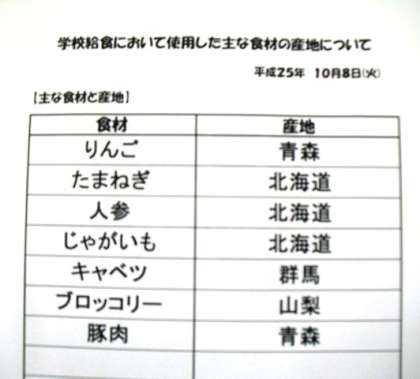 学校給食において使用した主な食材の産地について
平成25年 10月8日(火)
【主な食材と産地】
食材 産地
りんご 青森
たまねぎ 北海道
人参 北海道
じゃがいも 北海道
キャベツ 群馬
ブロッコリー 山梨
豚肉 青森